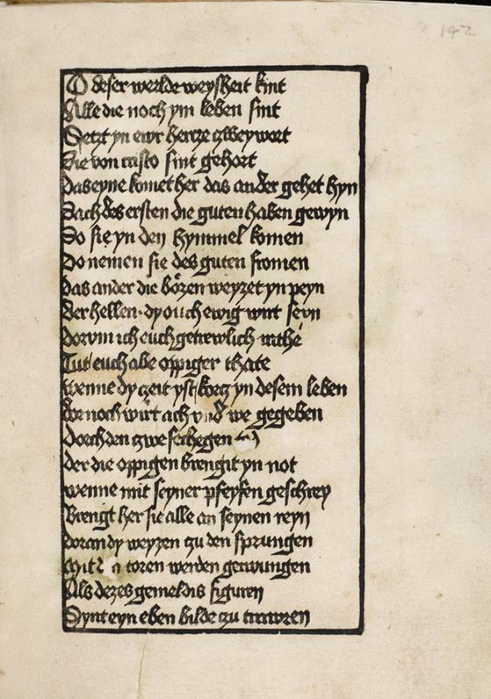 142
O deser werlde weysheit kint
Alle die noch ym leben sint
Setzt yn ewr hertze zwey wort
Die von cristo sint gehort
Das eyne komet her das ander gehet hyn
Nach des ersten die guten haben gewyn
So sie yn den hymmel komen
Do nemen sie des guten fromen
Das ander die bözen weyzet yn peyn
Der hellen dy ouch ewig wirt seyn
Dorvm ich euch getrewlich rathe
Tut euch abe oppiger thate
Wenne dy czeit yst korcz yn desem leben
Dor noch wirt ach vnd we gegeben
Doech den
Der die oppigen brengit yn not
wenne mit seyner pfeyfen geschrey
Brengt her sie alle an seynen reyn
doran dy weyzen zu den sprungen
mit toren werden getwungen
Als dezes gemeldis figuren
Synt eyn eben bilde zu